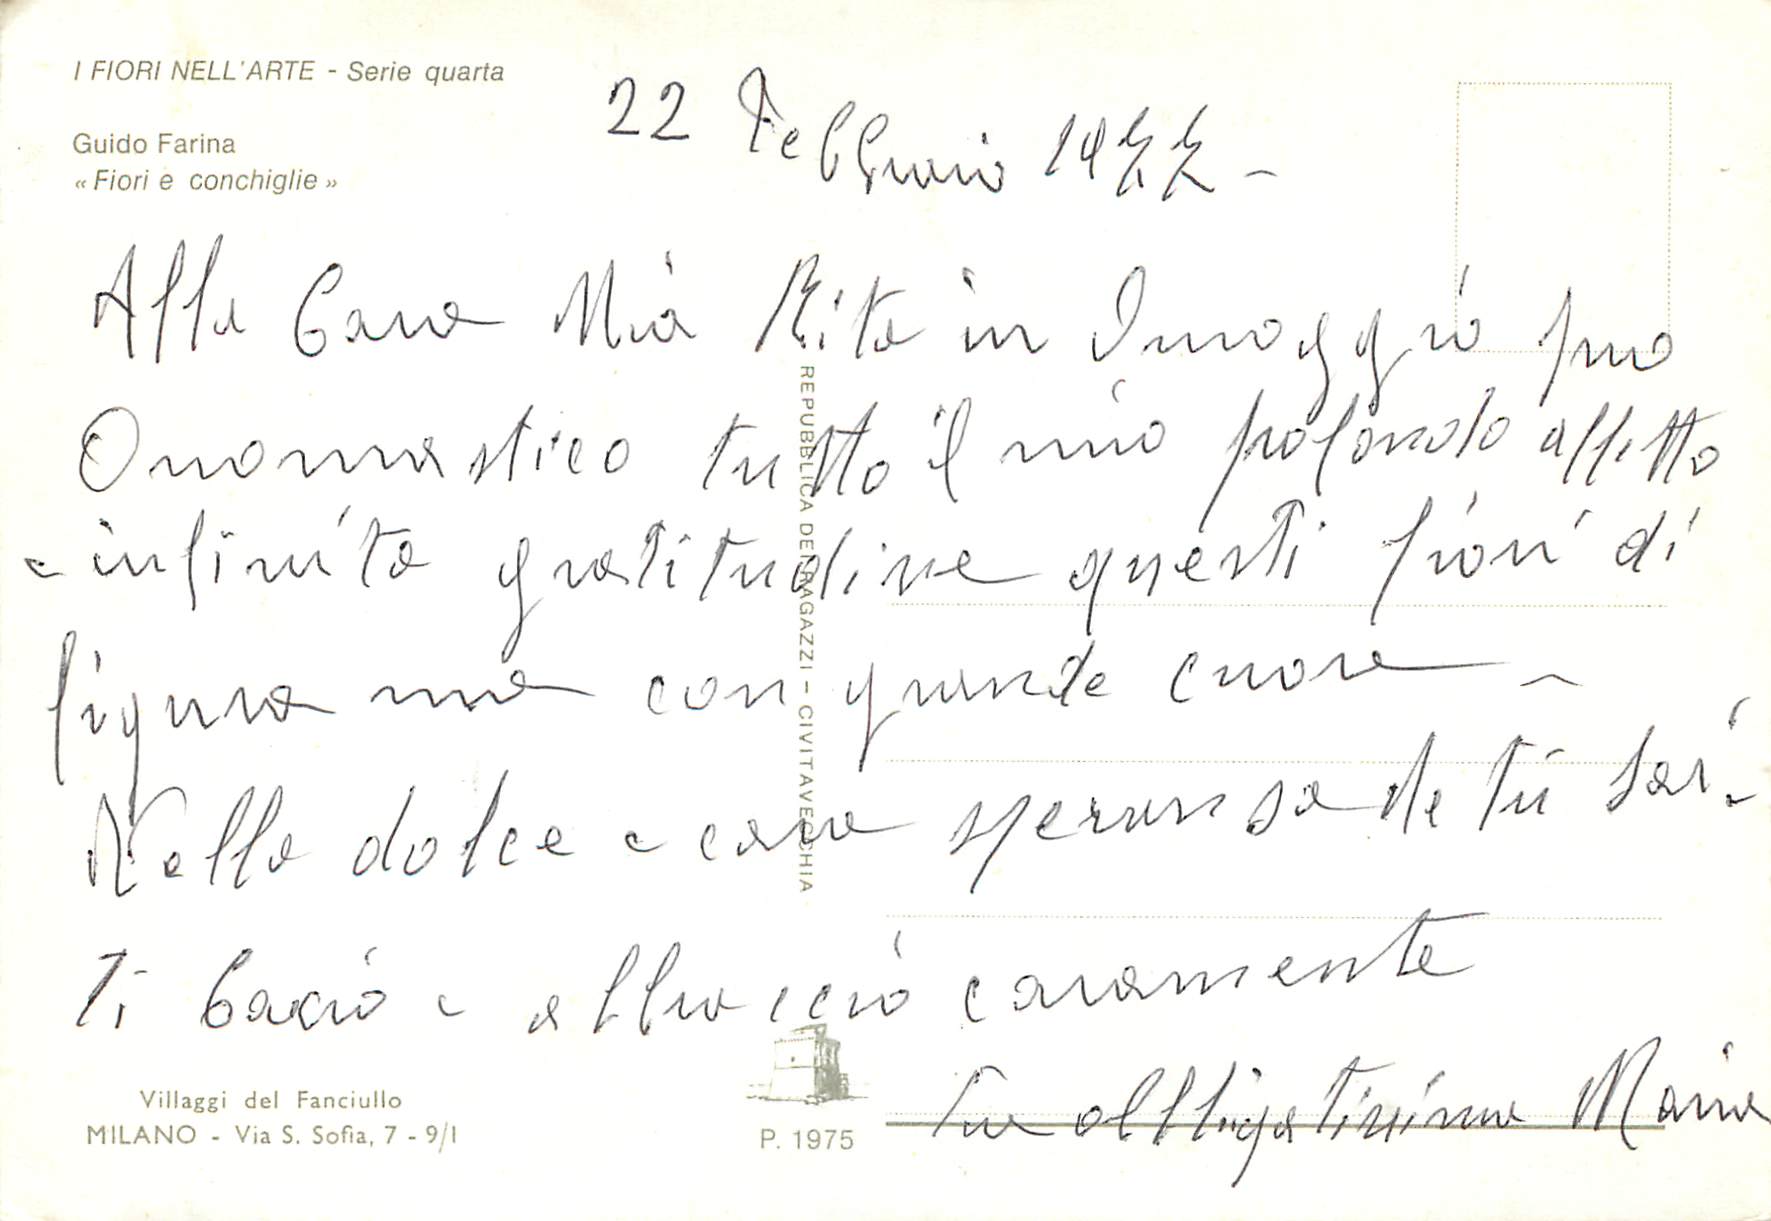 I FIORI NELL'ARTE - Serie quarta
Guido Farina
« Fiori e conchiglie »
22 Febbraio 1977 -
Alla Cara Mia Rita in Omaggio suo
Onomastico tutto il mio profondo affetto
e infinita gratitudine questi fiori di
figura ma con grande cuore -
Nella dolce e cara speranza che tu sai.
Ti bacio e abbraccio caramente
Tua obbligatissima Maria
REPUBBLICA DEI RAGAZZI - CIVITAVECCHIA
Villaggi del Fanciullo
MILANO - Via S. Sofia, 7 - 9/1
P. 1975